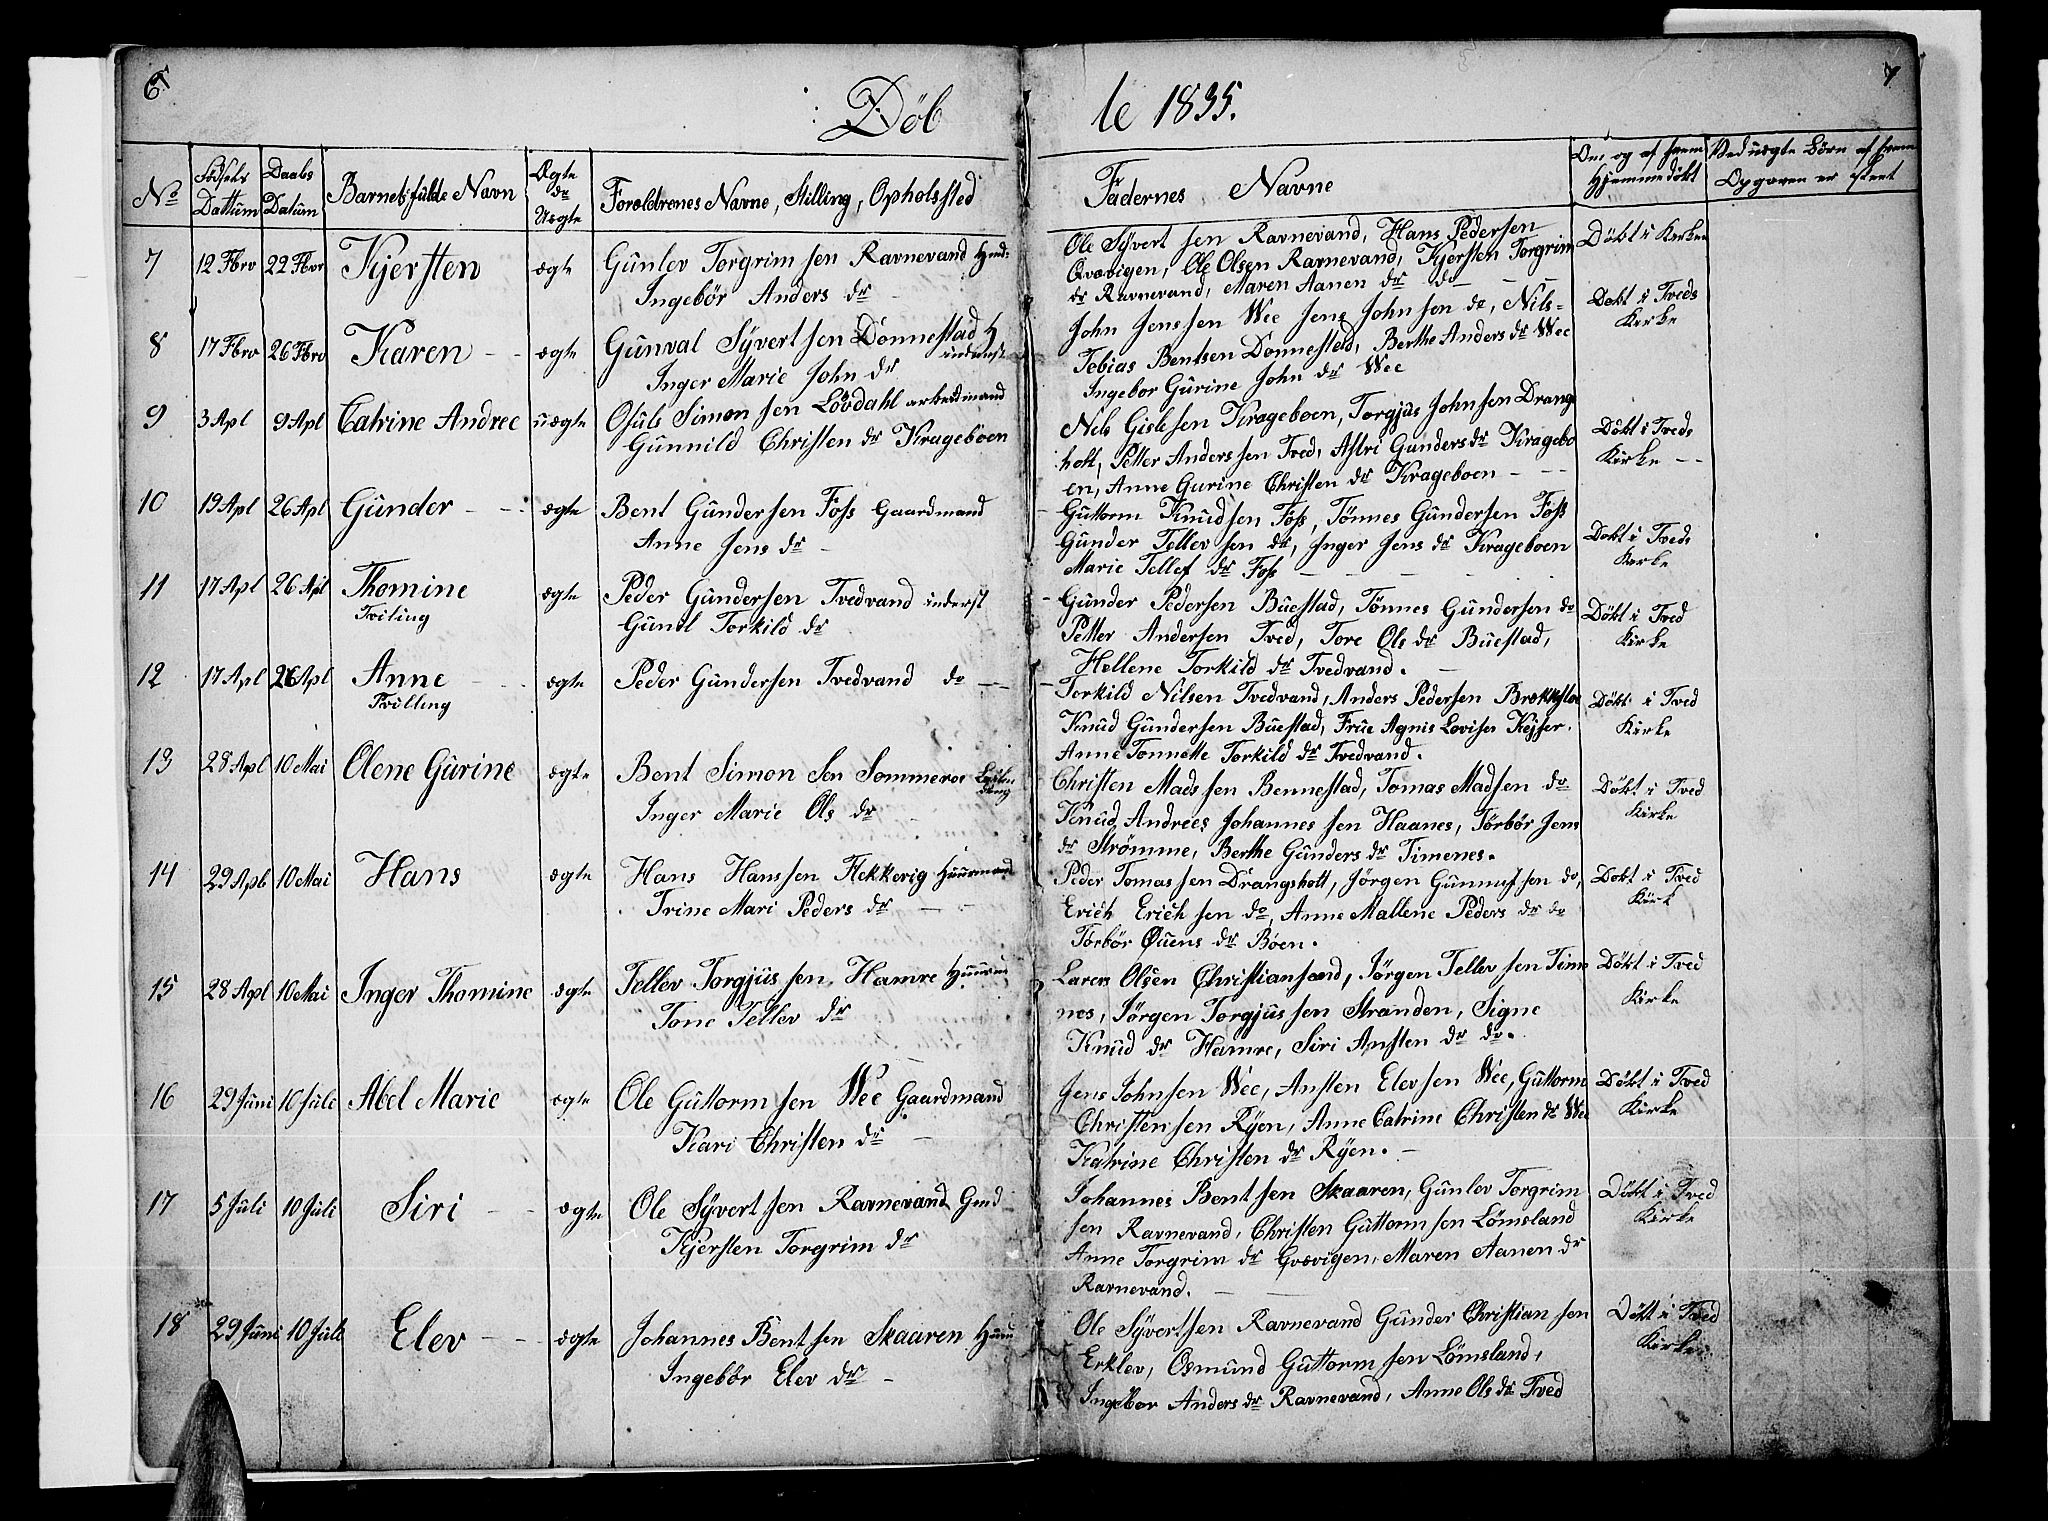 6
7
Döb
te 1835.
No
Fødsels Dattum
Daabs Datum
Barnets fulde Navn
Ægte
do
Uægte
Forældrenes Navne, Stilling, Opholssted
Fadernes Navne
Om og af hvem
Hjemmedöbt
Ved uægte Børn af hvem
Opgaven er skeet
7 12 Fbro 22 Fbro Kjersten ægte Gunlev Torgrim sen Ravnevand
Ingebör Anders dr
Ole Syvert sen Ravnevand, Hans Pedersen
Qvævigen, Ole Olsen Ravnevand, Kjersten Torgrim
dr Ravnevand, Maren Aanen dr do
Döbt i Kirken
8 17 Fbro 26 Fbro Karen ægte Gunval Syvert sen Donnestad inderst
Inger Marie John dr
John Jens sen Wee Jens John sen do, Nils
Tobias Bentsen Donnestad, Berthe Anders dr Wee
Ingebor Gurine John dr Wee
Döbt i Tveds
Kirke
9 3 Apl 9 Apl Catrine Andree uægte Osuls Simon sen Lövdahl arbeidmand
Gunnild Christen dr Krageboen
Nels Gislesen Krageboen, Torgjus John sen Drangs
holt, Petter Anders sen Tved, Astri Gunders dr Kragebo
en, Anne Gurine Christen dr Krageboen
Döbt i Tveds
Kirke
10 19 Apl 26 Apl Gunder ægte Bent Gundersen Foss Gaardmand
Anne Jens dr
Guttorm Knudsen Foss, Tönnes Gundersen Foss
Gunder Tellev sen do, Inger Jens dr Krageboen
Marie Tellef dr Foss
Döbt i Tveds
Kirke
11 17 Apl 26 Apl Thomine ægte Peder Gundersen Tvedvand inderst
Tviling
Gunil Torkild dr
Gunder Pedersen Buestad, Tönnes Gundersen do
Petter Andersen Tved, Tore Ols dr Buestad,
Hellene Torkild dr Tvedvand.
Döbt i Tved
Kirke
12 17 Apl 26 Apl Anne ægte Peder Gundersen Tvedvand do
Tvilling
Torkild Nilsen Tvedvand, Anders Pedersen Brækkestø
Knud Gundersen Buestad, Frue Agnis Lovise Kejser.
Anne Tonnette Torkild dr Tvedvand.
Döbt i Tved
Kirke
13 28 Apl 10 Mai Olene Gurine ægte Bent Simon Sen Sommeroe
Inger Marie Ols dr
Christen Mads sen Bennestad, Tomas Madsen do
Knud Andrees Johannes sen Haanes, Törbör Jens
dr Strömme, Berthe Gunders dr Timenes.
Döbt i Tved
Kirke
14 29 Apl 10 Mai Hans ægte Hans Hans sen Flekkerig Huusmand
Trine Mari Peders dr
Peder Tomas sen Drangsholt, Jörgen Gunnufsen do,
Erich Erich sen do, Anne Mallene Peders dr do
Torbör Ouens dr Böen.
Döbt i Tved
Kirk
15 28 Apl 10 Mai Inger Thomine ægte Tellev Torgjus sen Hamre Huusm
Tone Tellev dr
Larers Olsen Christiansand, Jörgen Tellev sen Time
nes, Jörgen Torgjus sen Stranden, Signe
Knud dr Hamre, Siri Ansten dr do.
Döbt i Tved
Kirke
16 29 Juni 10 Juli Abel Marie ægte Ole Guttorm sen Wee Gaardmand
Kari Christen dr
Jens Johnsen Wee, Ansten Elev sen Wee, Guttorm
Christensen Ryen, Anne Catrine Christen dr Wee
Katrine Christen dr Ryen.
Döbt i Tved
Kirke
17 5 Juli 10 Juli Siri ægte Ole Syvert sen Ravnevand Gmd
Kjersten Torgrim dr
Johannes Bent sen Skaaren, Gunlev Torgrim
sen Ravnevand, Christen Guttorm sen Lömsland
Anne Torgrim dr Qvævigen, Maren Aanen dr
Ravnevand.
Döbt i Tved
Kirke
18 29 Juni 10 Juli Elev ægte Johannes Bent sen Skaaren Huus
Ingebör Elev dr
Ole Syvertsen Ravnevand Gunder Christian sen
Erklev, Osmund Guttorm sen Lömsland,
Ingebor Anders dr Ravnevand, Anne Ols dr Tved
Döbt i Tved
Kirke